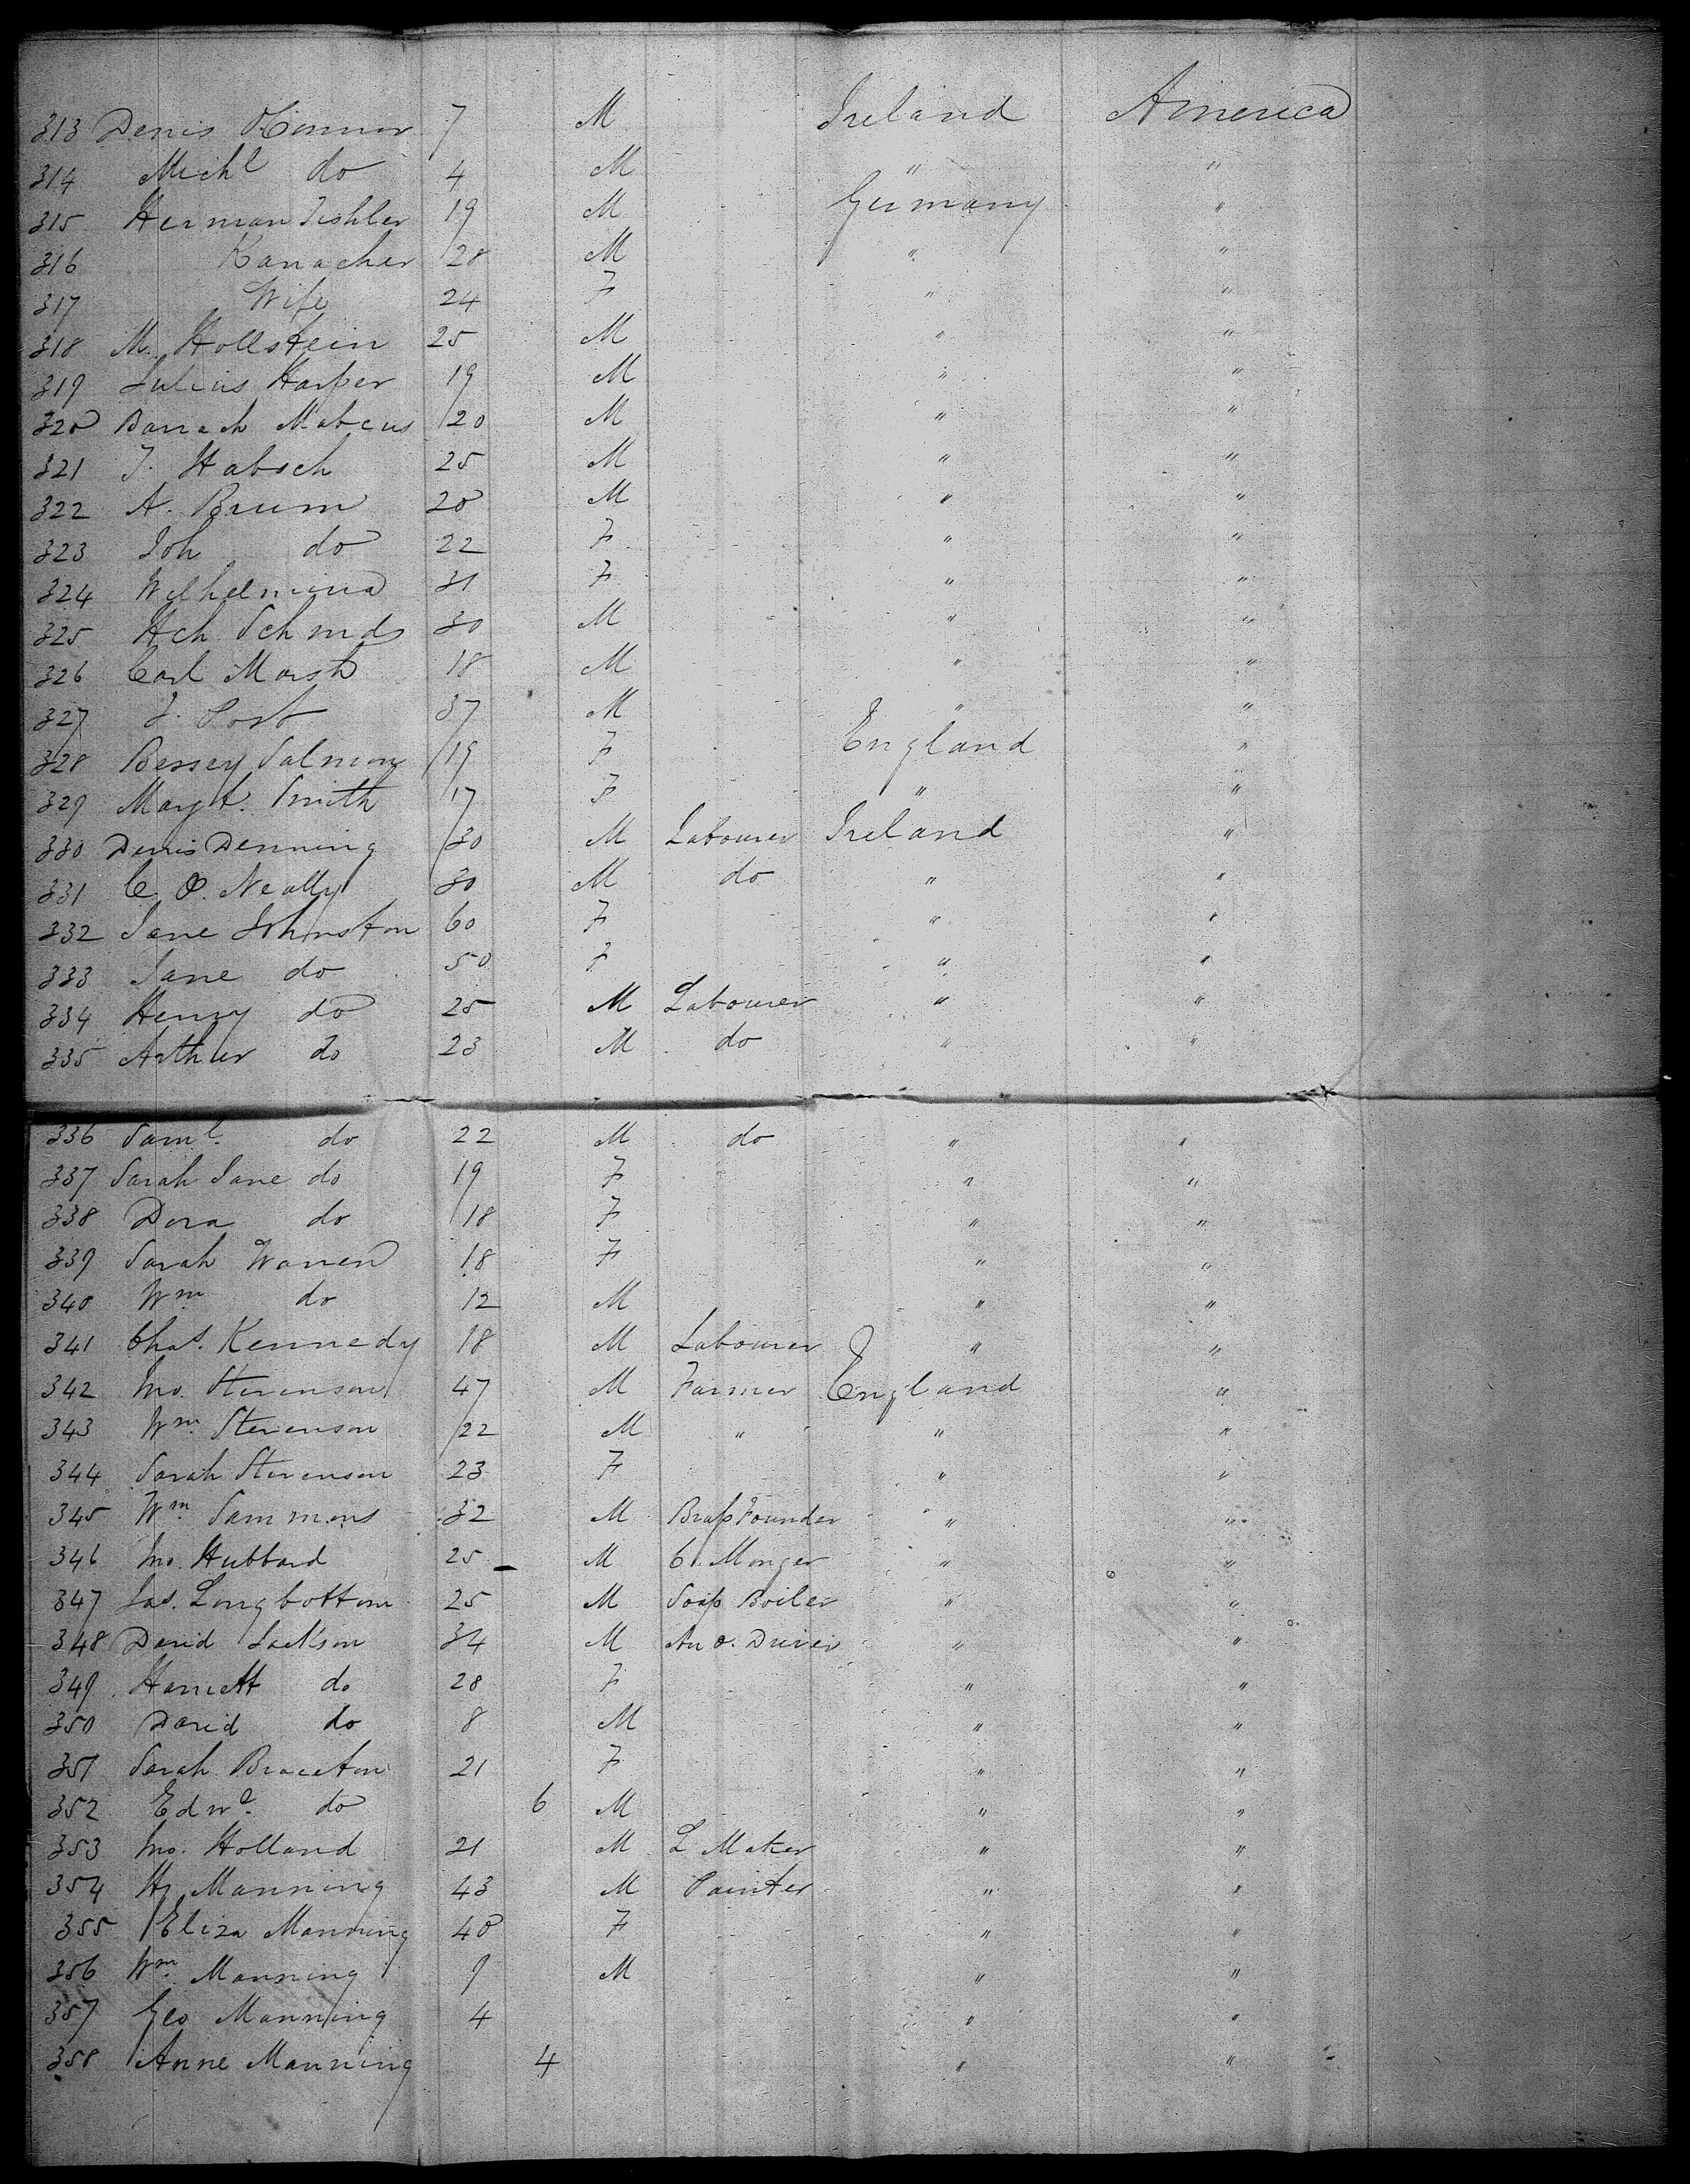 313 Denis O'Connor 7 M Ireland America
314 Michl do 4 M " "
315 Herman Tishler 19 M Germany "
316 Kanacher 28 M " "
317 Wife 24 F " "
318 M. Hollstein 25 M " "
319 Julius Harper 19 M " "
320 Barrach Mabcus 20 M " "
321 J. Habsch 25 M " "
322 A. Brum 20 M " "
323 Joh do 22 F " "
324 Wilhelmina 31 F " "
325 Hch Schmds 30 M " "
326 Carl Marsh 18 M " "
327 J. Post 37 M " "
328 Bessey Salmon 19 F England "
329 Mary A. Smith 17 F " "
330 Denis Denning 30 M Labourer Ireland "
331 C O. Neally 30 M do " "
332 Jane Johnston 60 F " "
333 Jane do 50 F " "
334 Henry do 25 M Labourer " "
335 Arthur do 23 M do " "
336 Saml do 22 M do " "
337 Sarah Jane do 19 F " "
338 Dora do 18 F " "
339 Sarah Warren 18 F " "
340 Wm do 12 M " "
341 Chas. Kennedy 18 M Labourer " "
342 Jno. Stevenson 47 M Farmer England "
343 Wm. Stevenson 22 M " " "
344 Sarah Stevenson 23 F " "
345 Wm. Sammons 32 M Brass Founder " "
346 Jno. Hubbard 25 M C. Monger " "
347 Jas. Longbottom 25 M Soap Boiler " "
348 David Jackson 34 M Driver " "
349 Harriett do 28 F " "
350 David do 8 M " "
351 Sarah Braceton 21 F " "
352 Edwd. do 6 M " "
353 Jno. Holland 21 M L Maker " "
354 Hy Manning 43 M Painter " "
355 Eliza Manning 40 F " "
356 Wm. Manning 9 M " "
357 Geo Manning 4 " "
358 Anne Manning 4 " "